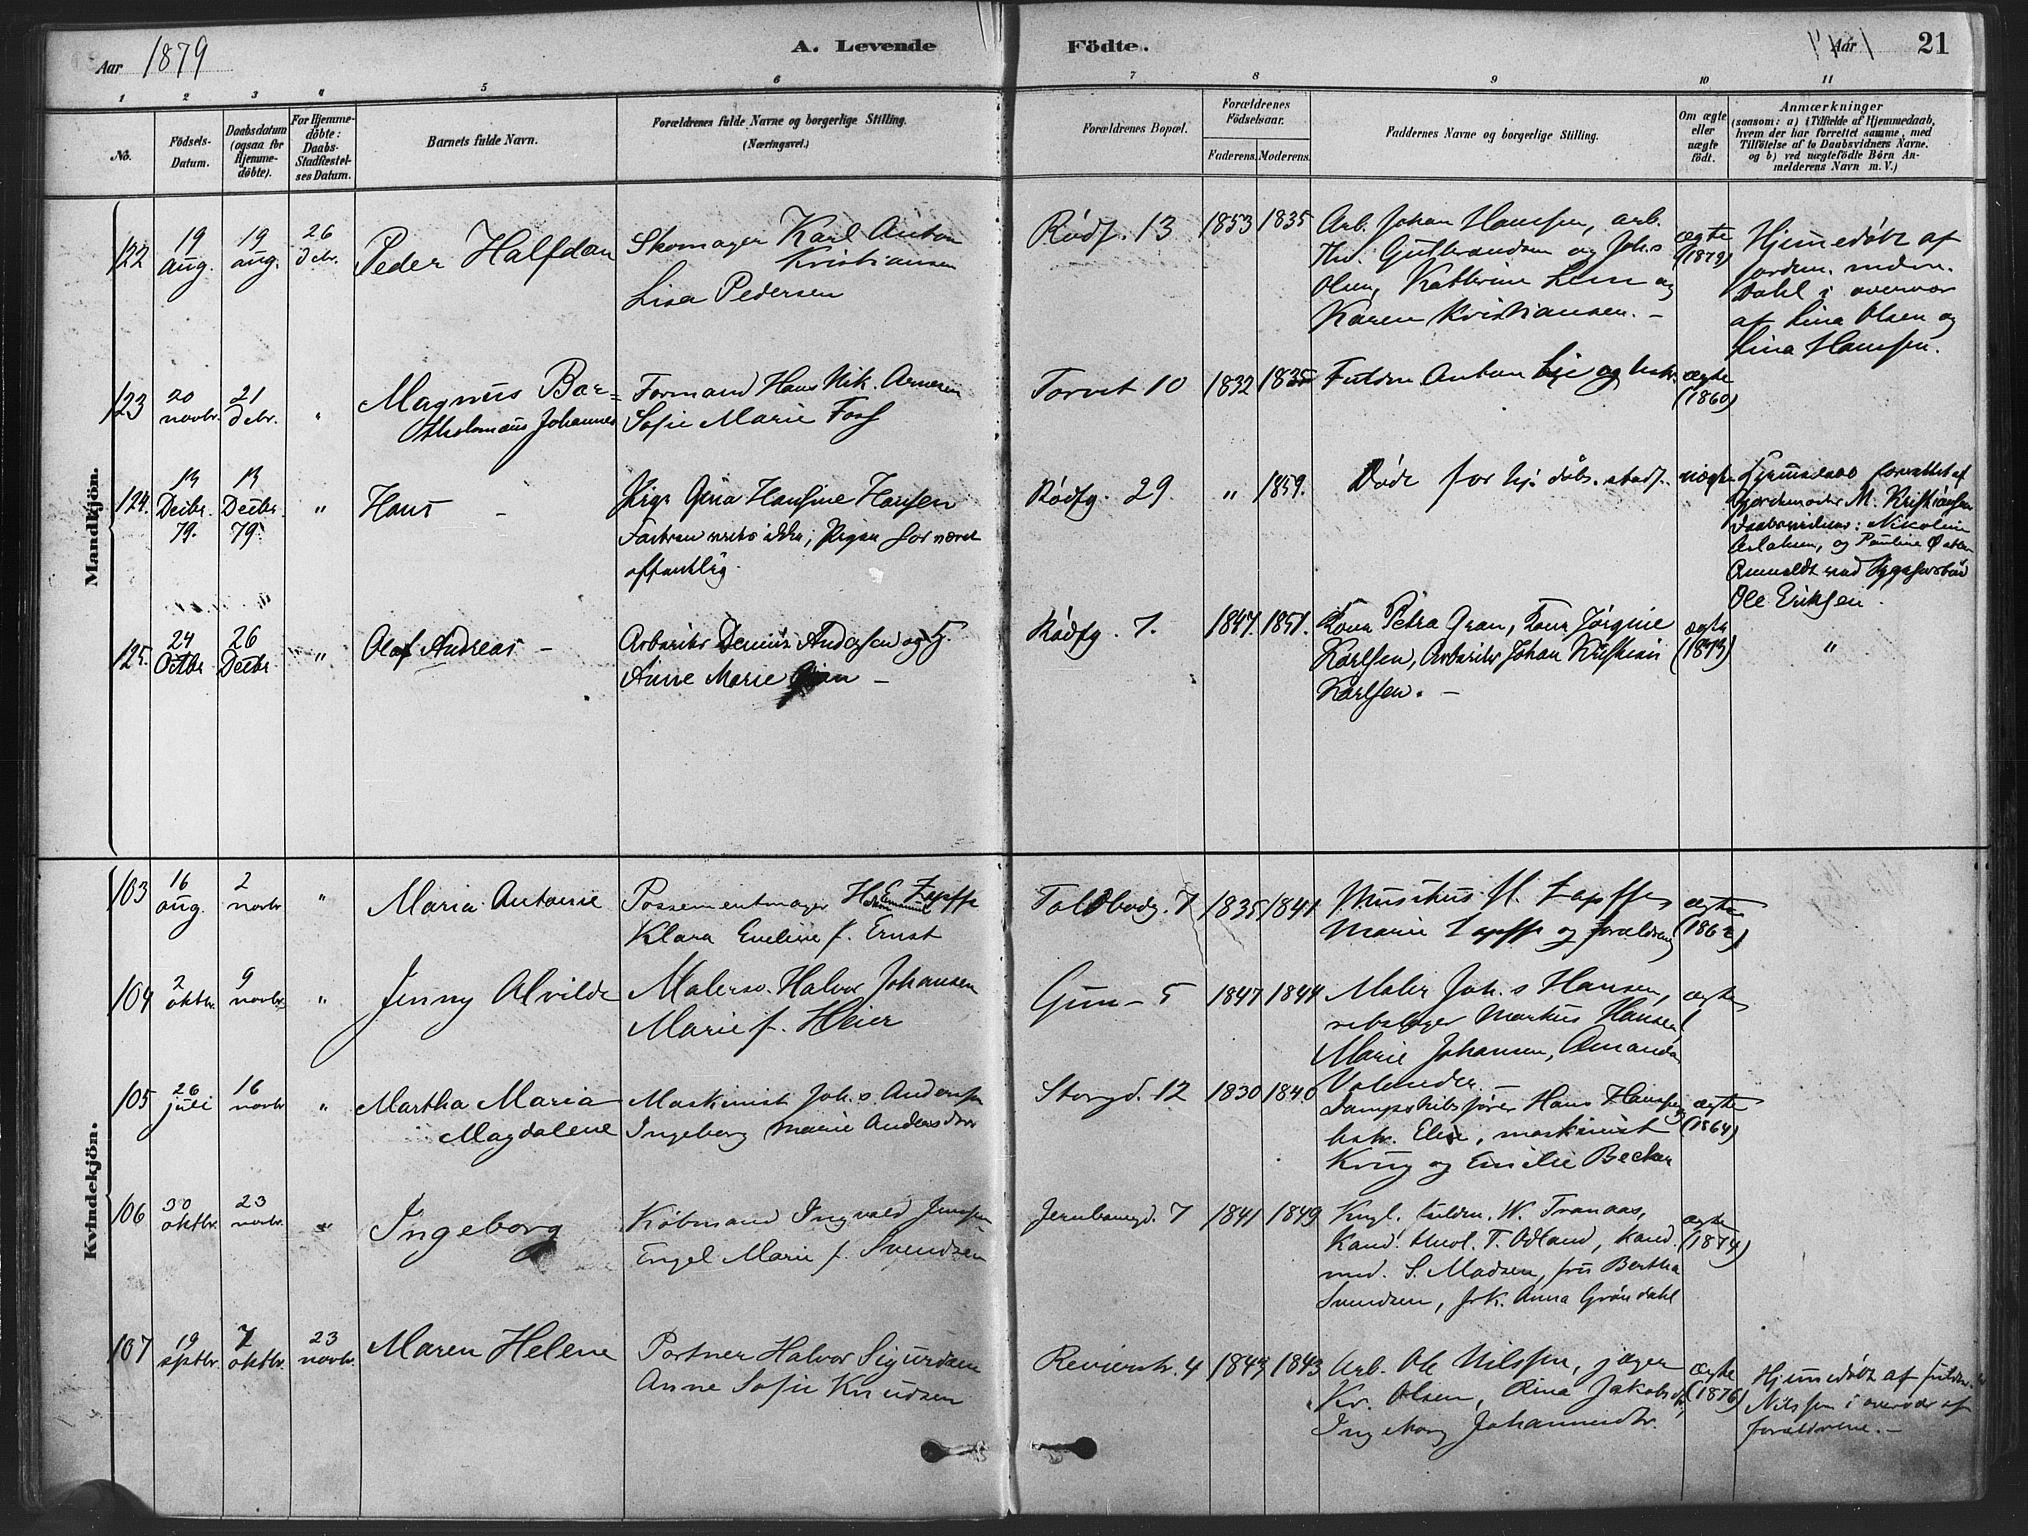 Aar 1879
A. Levende Födte.
Aar
21
1 2 3 4 5 6 7 8 9 10 11
No.
Födsels-
Datum.
Daabsdatum
(ogsaa for
Hjemme-
döbte).
For Hjemme-
döbte:
Daabs-
Stadfæstel-
ses Datum.
Barnets fulde Navn.
Forældrenes fulde Navne og borgerlige Stilling.
(Næringsvei.)
Forældrenes Bopæl.
Forældrenes
Födselsaar.
Faderens. Moderens.
Faddernes Navne og borgerlige Stilling.
Om ægte
eller
uægte
födt.
Anmærkninger
(saasom: a) i Tilfælde af Hjemmedaab,
hvem der har forrettet samme, med
Tilföielse af to Daabsvidners Navne.
og b) ved uægtefödte Börn An-
melderens Navn m. V.)
Mandkjön.
122
19
Aug.
19
aug.
26
debr.
Peder Halfdan
Skomager Karl Anton
Kristiansen
Lisa Pedersen
Rødf. 13
1853 1835
Arb. Johan Hanssen, arb.
Th. Gulbrandsen og Johs
Olsen, Kathrine Lem og
Karen Kristiansen. –
ægte
(1879)
Hjemmedøbt af
jordm.
Dahl i overvær
af Lina Olsen og
Lina Hanssen.
123
20
novbr.
21
debr.
"
Magnus Bar=
tholomæus Johannes
Formand Hans Nik. Arnesen
Sofie Marie Foss
Torvet 10
1832 1835
Fuldm Anton Lie og hstr.
ægte
(1860)
124.
13
Decbr.
79.
13
Decbr.
79.
"
Hans –
Pige Gina Hansine Hansen
ikke; Pigen før været
offentlig.
Rødfg. 29.
" 1859.
Døde før hj. dåbs. stadf.
uægte
Hjemmedaab forrettet af
Gjordemoder M. Kristiansen
Daabsvidner: Nikoline
Aslaksen, og Pauline
Anmeldt ved
Ole Eriksen.
125.
24
Octbr.
26
Decbr
"
Olaf Andreas –
Arbeider Andersen og
Anne Marie –
Rødfg. 7.
1847. 1851.
Kone Petra Gran, Kone Jørgine
Karlsen, Arbeider Johan Kristian
Karlsen. –
ægte
(1873)
"
Kvindekjön.
103
16
aug.
2
novbr
"
Maria Antonie
Possementmager H. Emanuel Zapffe
Klara Eveline f. Ernst
Toldbodg. 7
1835 1841
Musikus H. Zapffe,
Marie Zapffe og forældrene
ægte
(1862)
104
2
oktbr.
9
novbr.
"
Jenny Alvilde
Malersv. Halvor Johansen
Marie f. Heier
Grun – 5
1847 1844
Maler Joh.s Hansen,
rebslager Markus Hansen,
Marie Johansen, Amanda
ægte
105
26
juli
16
novbr
"
Martha Maria
Magdalene
Maskinist Joh.s Andersen
Ingeborg Marie Andersdtr
Storgd. 12
1830 1840
Dampskibsfører Hans Hanssen
hstr. Elise, maskinist
Krug og Emilie Becker
ægte
(1864)
106
30
oktbr.
23
novbr.
"
Ingeborg
Købmand Ingvald Jenssen
Engel Marie f. Svendsen
Jernbanegd. 7
1841 1849
Kngl. fuldm. W. Tranaas,
Kand. theol. T. Odland, kand.
med. S. Madsen, fru Bertha
Svendsen, frk. Anna Grøndahl
ægte
(1874)
107
19
septbr.
7
oktbr.
23
novbr.
Maren Helene
Portner Halvor Sigurdsen
Anne Sofie Knudsen
Revierstr. 4
1843 1843
Arb. Ole Nilssen, jæger
Kr. Olsen, Rina Jakobsdtr,
Ingeborg Johannesdtr.
ægte
(1876)
Hjemmedøbt af
Nilssen i overvær af
forældrene. –